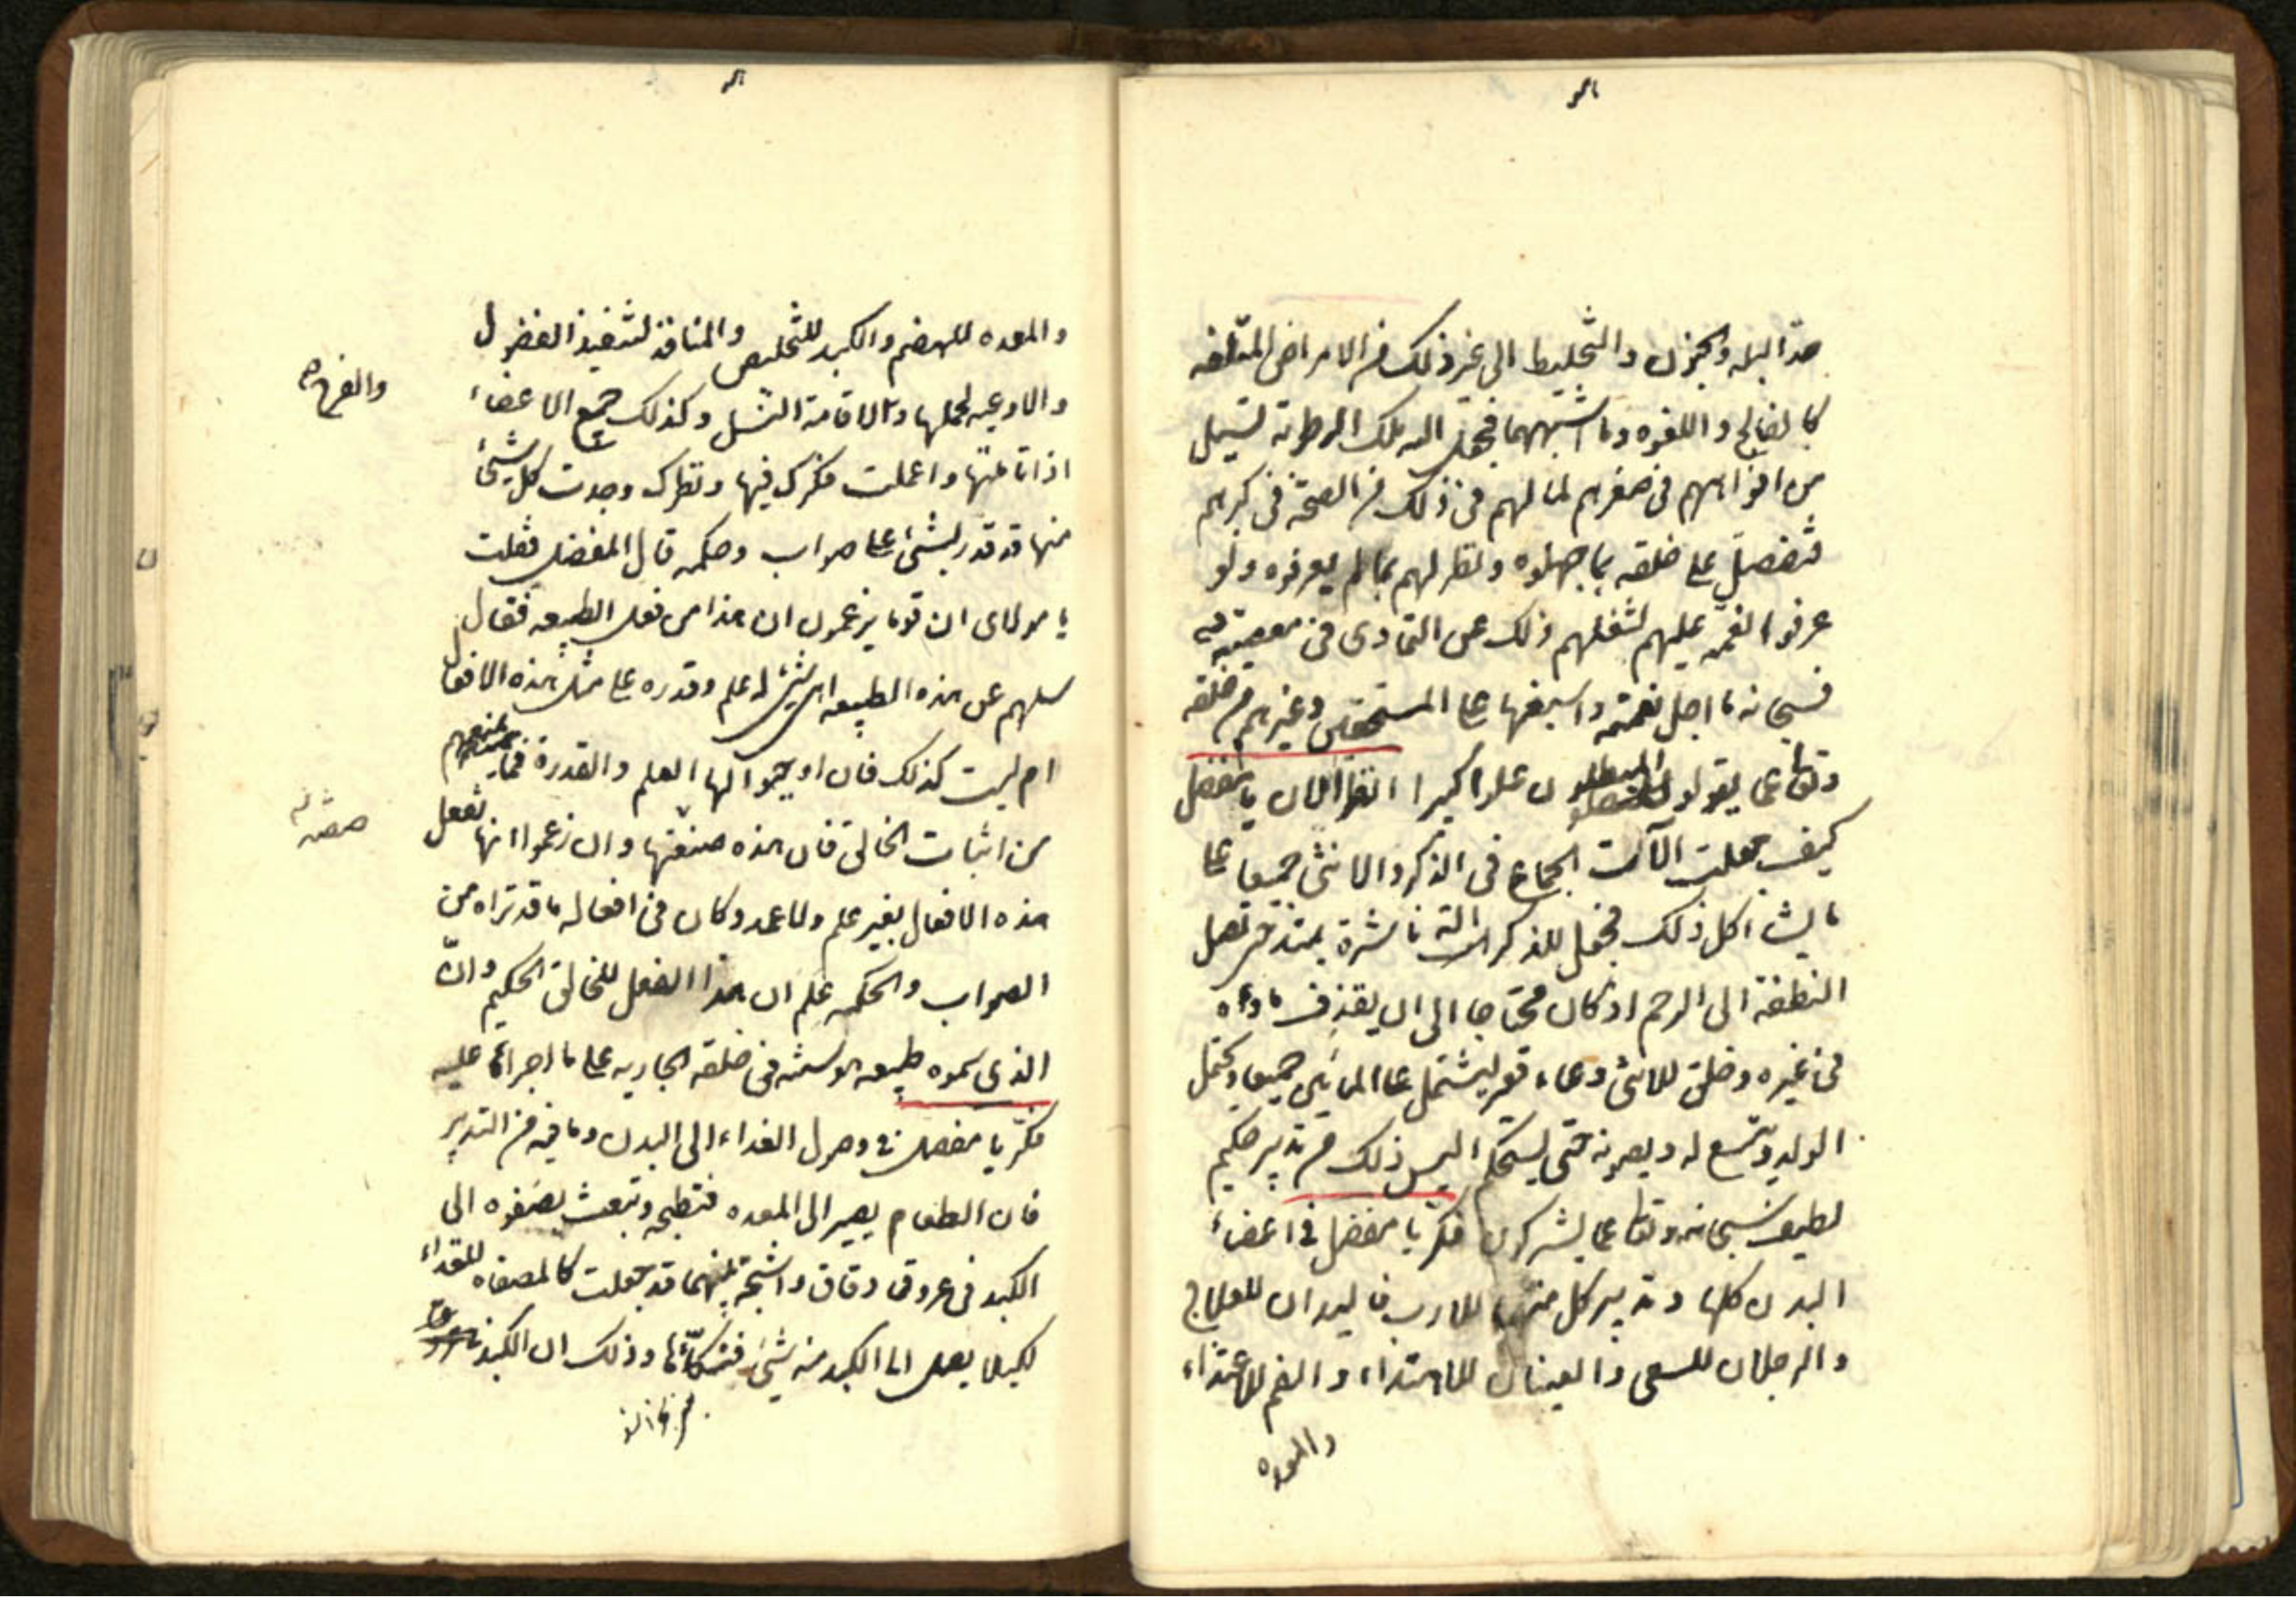 حد البله والجنون والتخليط الى غير ذلك من الامراض المتلفه
كالفالج واللقوه وما اشبههما فجعل الله تلك الرطوبة تسيل
من افواههم فى صغرهم لما لهم فى ذلك من الصحّة فى كبرهم
فتفضّل على خلقه بما جهلوه ونظر لهم بما لم يعرفوه ولو
عرفوا نعمه عليهم لشغلهم ذلك عن التمادى فى معصيته
فسبحانه ما اجل نعمته واسبغها على المستحقين وغيرهم من خلقه
وتعالى عما يقول المبطلون علوا كبيرا انظر الان يا مفضل
كيف جعلت آلات الجماع فى الذكر والانثى جميعا على
ما يشاكل ذلك فجعل للذكر الة ناشزة يمتد حتى تصل
النطفة الى الرحم اذ كان محتاجا الى ان يقذف ماءه
فى غيره وخلق للانثى وعاء قعر ليشتمل على المائين جميعا ويحتمل
الولد ويتسع له ويصونه حتى يستحكم اليس ذلك من تدبير حكيم
لطيف سبحانه وتعالى عما يشركون فكّر يا مفضل فى اعضاء
البدن كلها وتدبير كل منها للارب فاليدان للعلاج
والرجلان للسعى والعينان للاهتداء والفم للاغتذاء
والمعده
والمعده للهضم والكبد للتخليص والمنافذ لتنفيذ الفضول
والاوعيه لحملها والفرج لاقامة النسل وكذلك جميع الاعضاء
اذا تاملتها واعملت فكرك فيها ونظرك وجدت كل شئ
منها قد قدر لشئ على صواب وحكمه قال المفضل فقلت
يا مولاى ان قوما يزعمون ان هذا من فعل الطبيعه فقال
سلهم عن هذه الطبيعه اهى شئ له علم وقدره على مثل هذه الافعال
ام ليست كذلك فان اوجبوا لها العلم والقدرة فما يمنعهم
من اثبات الخالق فان هذه صنعتها وان زعموا انها تفعل
هذه الافعال بغير علم ولا عمد وكان فى افعاله ما قد تراه من
الصواب والحكمه علم ان هذا الفعل للخالق الحكيم وانّ
الذى سموه طبيعه هو سنته فى خلقه الجاريه على ما اجراها عليه
فكّر يا مفضل فى وصول الغذاء الى البدن وما فيه من التدبير
فان الطعام يصير الى المعده فتطبخه وتبعث بصفوه الى
الكبد فى عروق دقاق واشجة بينهما قد جعلت كالمصفاه للغذاء
لكيلا يصل الى الكبد منه شئ فتنكأها وذلك ان الكبد